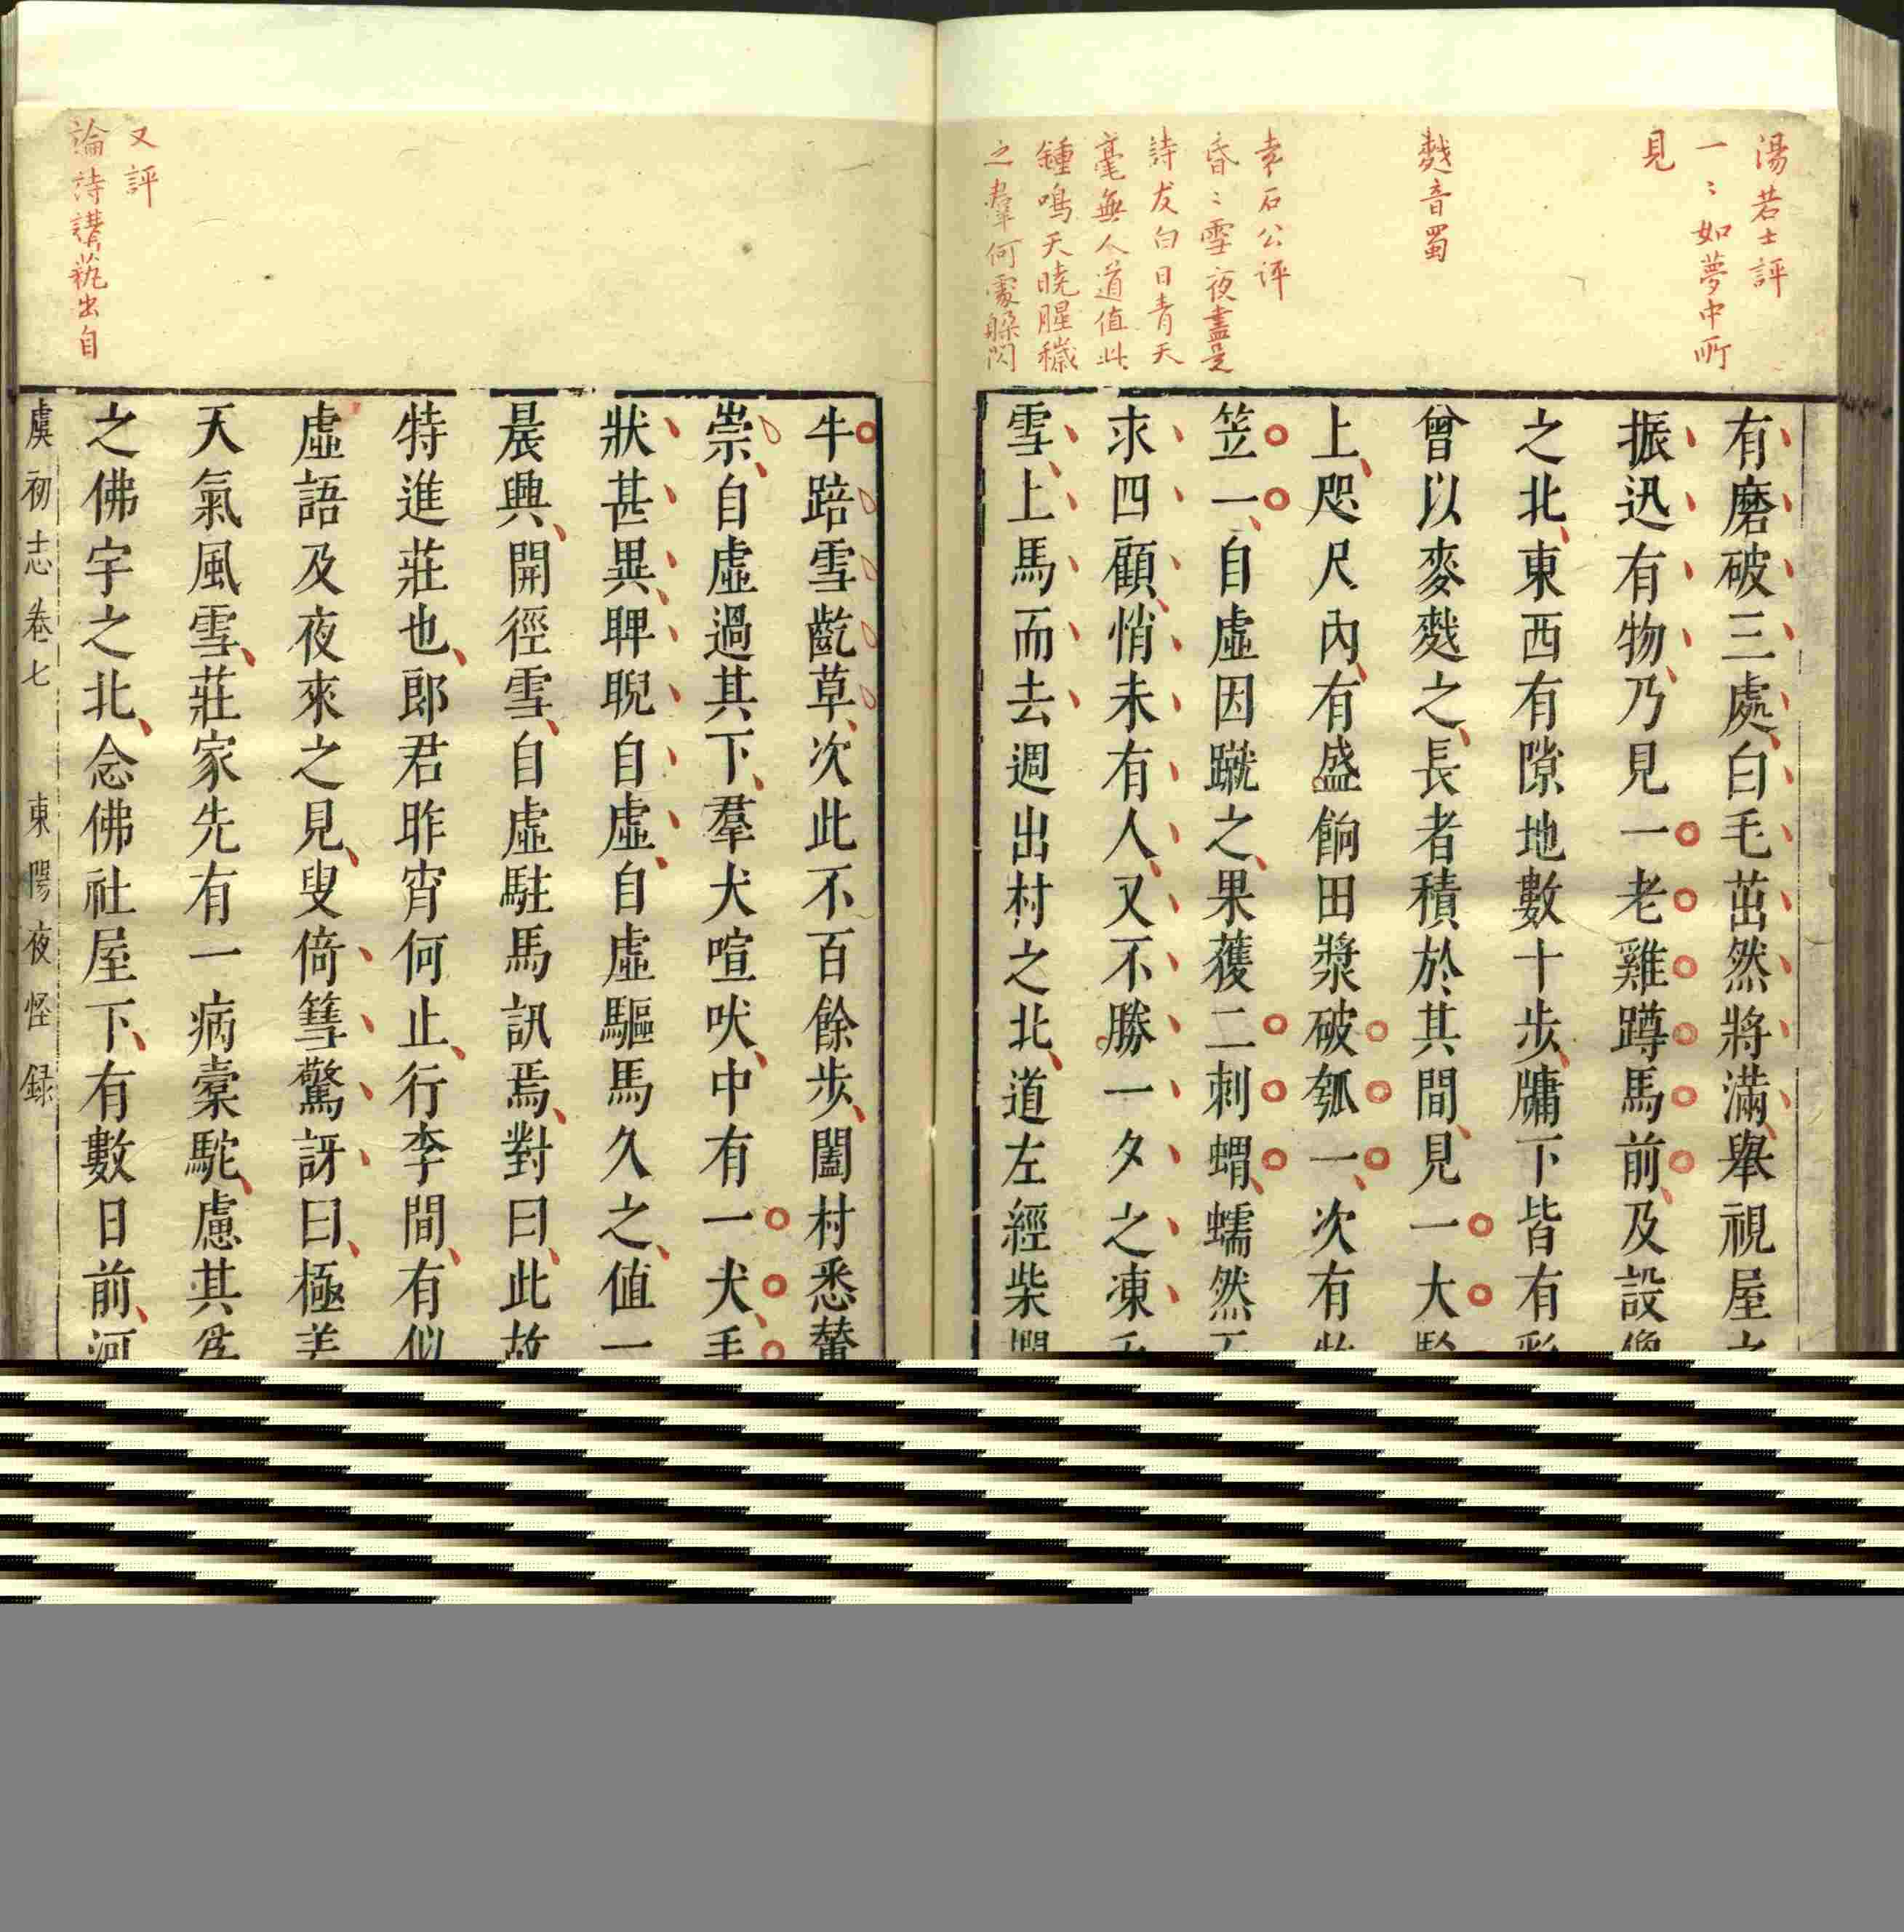 湯若士評
一〻如夢中所
見
麰音蜀
袁石公評
昏〻雪夜盡是
詩友白日青天
毫無人道值此
鍾鳴天曉腥穢
之羣何處躲閃
有磨破三處白毛茁然將滿舉視屋之
振迅有物乃見一老雞蹲馬前及設像
之北東西有隙地數十步牖下皆有彩
曾以麥之長者積於其間見一大
上咫尺內有盛餉田漿破瓠一次有牧
笠一自虛因蹴之果獲二刺蝟蠕然
求四顧悄未有人又不勝一夕之凍乃
雪上馬而去週出村之北道左經柴
又評
論詩講藝出自
牛踣雪齕草次此不百餘步闔村悉輦
崇自虛過其下羣犬喧吠中有一犬毛
狀甚異睥睨自虛自虛驅馬久之值一
晨興開徑雪自虛駐馬訊焉對曰此故
特進莊也郎君昨宵何止行李間有似
虛語及夜來之見叟倚篲驚訝曰極差
天氣風雪莊家先有一病橐駝慮其為
之佛宇之北念佛社屋下有數日前河
虞初志卷七 東陽夜怪録